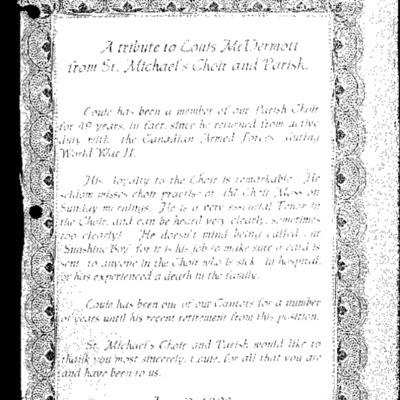 A tribute to Louis McDermott
from St. Michael's Choir and Parish.
Louie has been a member of our Parish Choir
for 49 years, in fact, since he returned from active
duty with the Canadian Armed Forces during
World War II.
His loyalty to the Choir is remarkable. He
seldom misses choir practise or the Choir Mass on
Sunday mornings. He is a very essential Tenor in
the Choir, and can be heard very clearly, sometimes
too clearly! He doesn't mind being called our
"Sunshine Boy" for it is his job to make sure a card is
sent to anyone in the Choir who is sick, in hospital,
or has experienced a death in the family.
Louie has been one of our Cantors for a number
of years until his recent retirement from this position.
St. Michael's Choir and Parish would like to
thank you most sincerely, Louie, for all that you are
and have been to us.